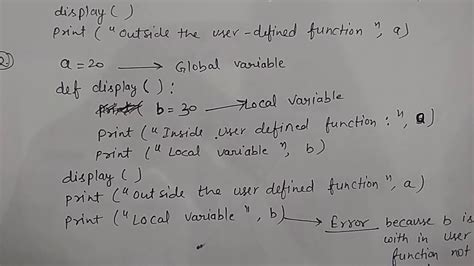 display ( )
print ( "Outside the user-defined function ", a)
2)
a = 20 → Global variable
def display ( ) :
b = 30 → Local variable
print (" Inside user defined function : ", a)
print (" Local variable ", b)
display ( )
print (" Out side the user defined function ", a)
print (" Local variable ", b) → Error because b is
with in user
function not